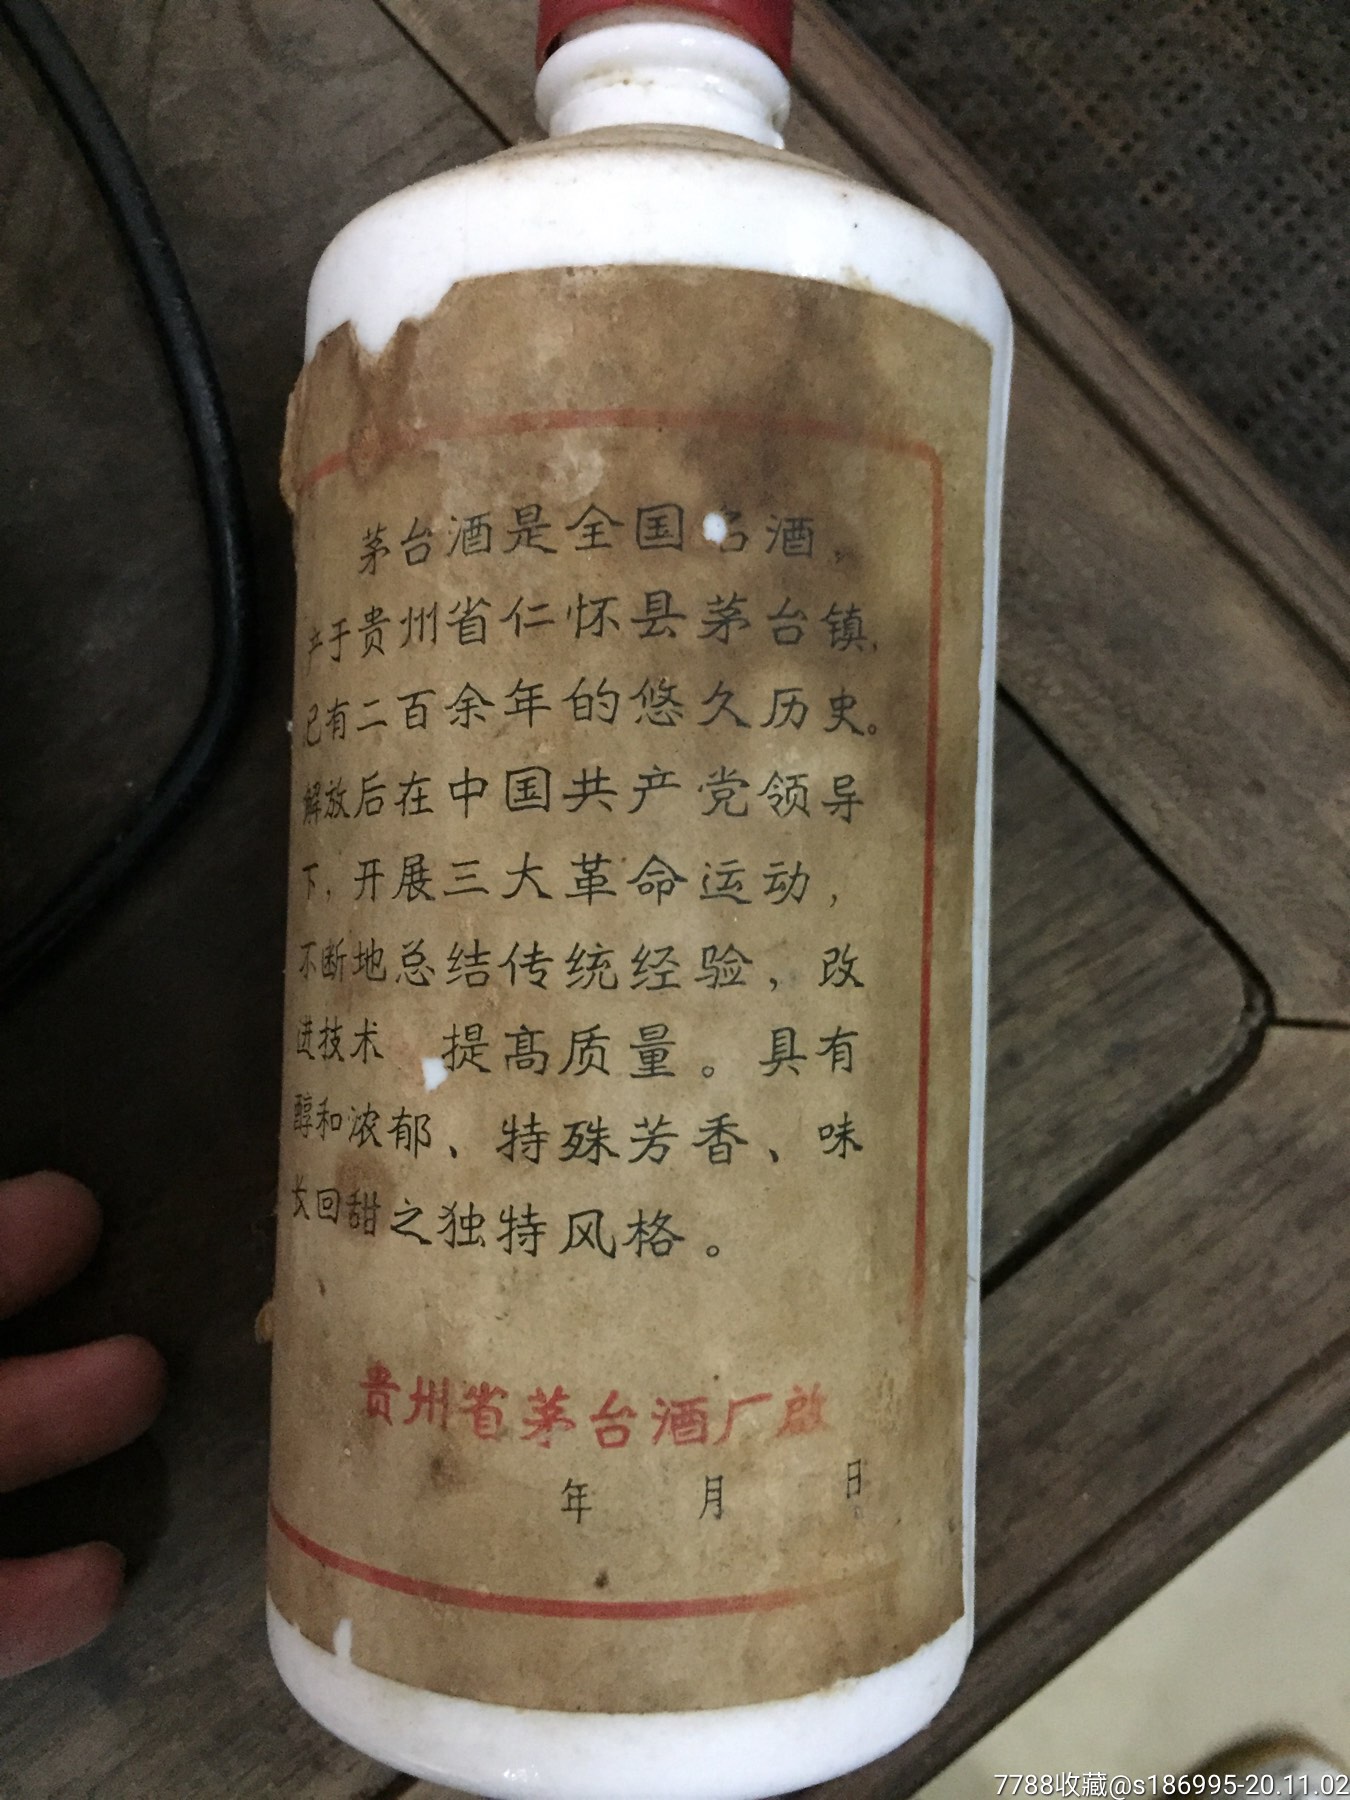 茅台酒是全国名酒，
产于贵州省仁怀县茅台镇，
已有二百余年的悠久历史。
解放后在中国共产党领导
下，开展三大革命运动，
不断地总结传统经验，改
进技术 提高质量。具有
醇和浓郁、特殊芳香、味
长回甜之独特风格。
贵州省茅台酒厂啟
年 月 日
7788收藏@s186995-20.11.02